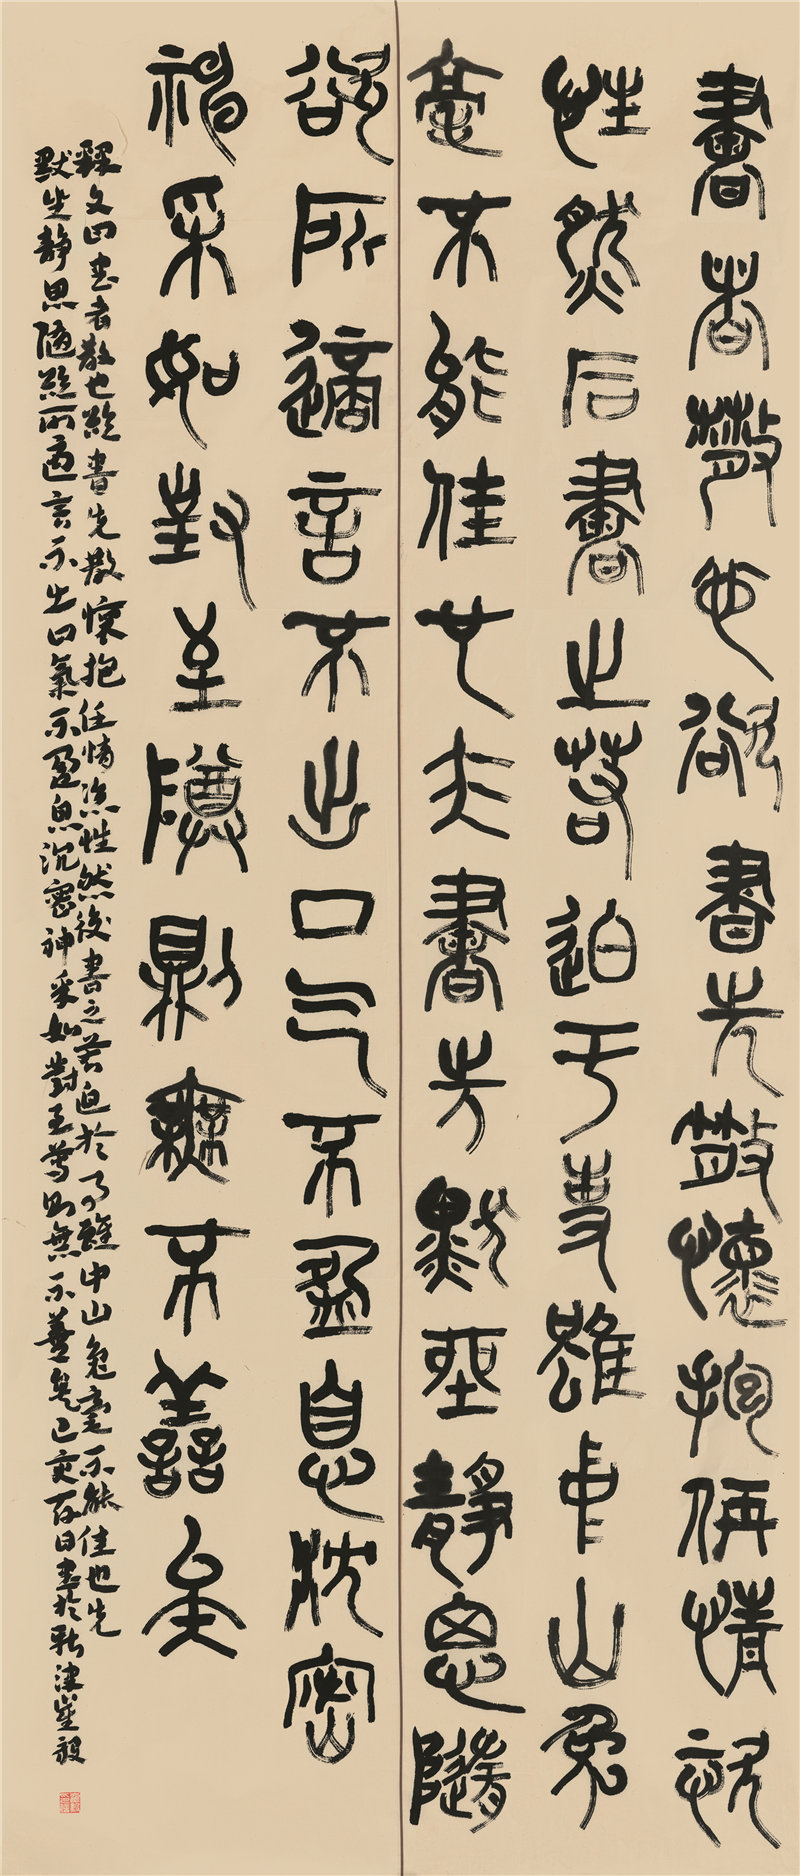 書者散也欲書先散懷抱任情恣
性然后書之若迫于事雖中山兔
毫不能佳也夫書先默坐靜思隨
欲所適言不出口气不盈息沈密
神采如對至尊則無不善矣
釋文曰書者散也欲書先散懷抱任情恣性然後書之若迫於事雖中山兔毫不能佳也先
默坐靜思隨欲所適言不出口氣不盈息沉密神采如對至尊則無不善矣己亥日書於新津崔毅